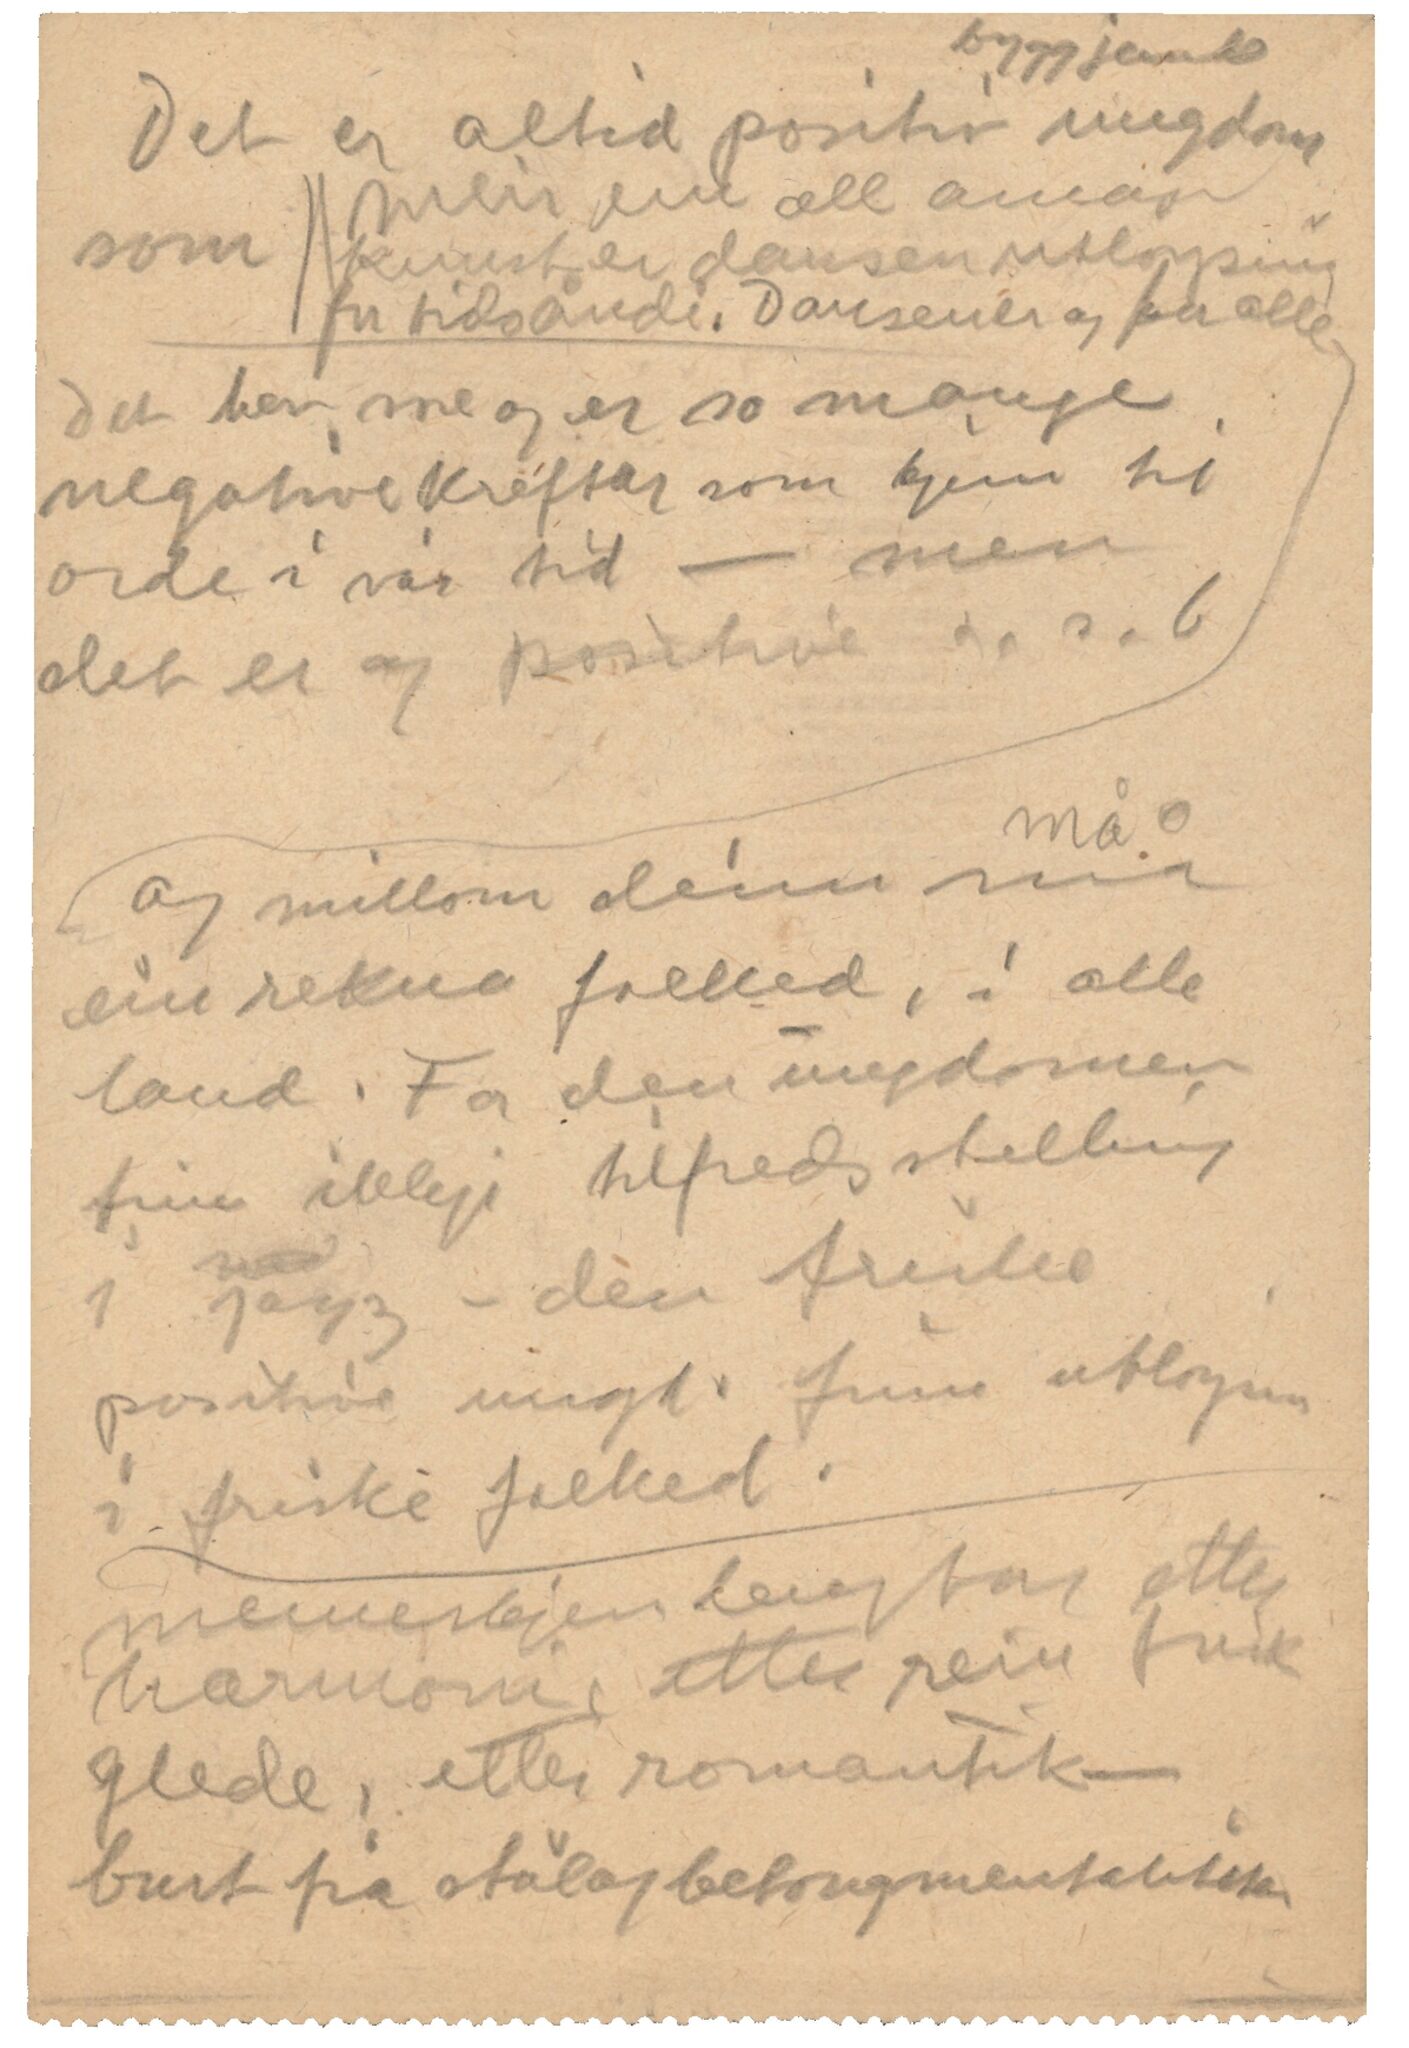 byggjande
Det er altid positiv ungdom
som
meir enn all annan
kunst er dansen utløysing
for tidsånde. Dansen er og for alle
Det her me og er so mange
negative kreftar som kjem til
orde i vår tid — men
det er og positive o. s. b
må
og millom deim må
ein rekna folked, i alle
land. For den ungdomen
finn ikkje tilfredsstelling
i jazz - den friske
positive ungd. finn utløysn
i friske folked.
menneskjen lengtar etter
harmoni, etter rein frisk
glede, etter romantik —
burt frå stål og betongmentaliteten